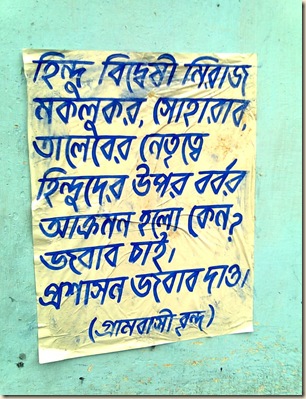 হিন্দু বিদ্বেষী মিরাজ
মকলুকর, সোহারাব,
তালেবের নেতৃত্বে
হিন্দুদের উপর বর্বর
আক্রমন হলো কেন?
জবাব চাই।
প্রশাসন জবাব দাও।
(গ্রামবাসী বৃন্দ)